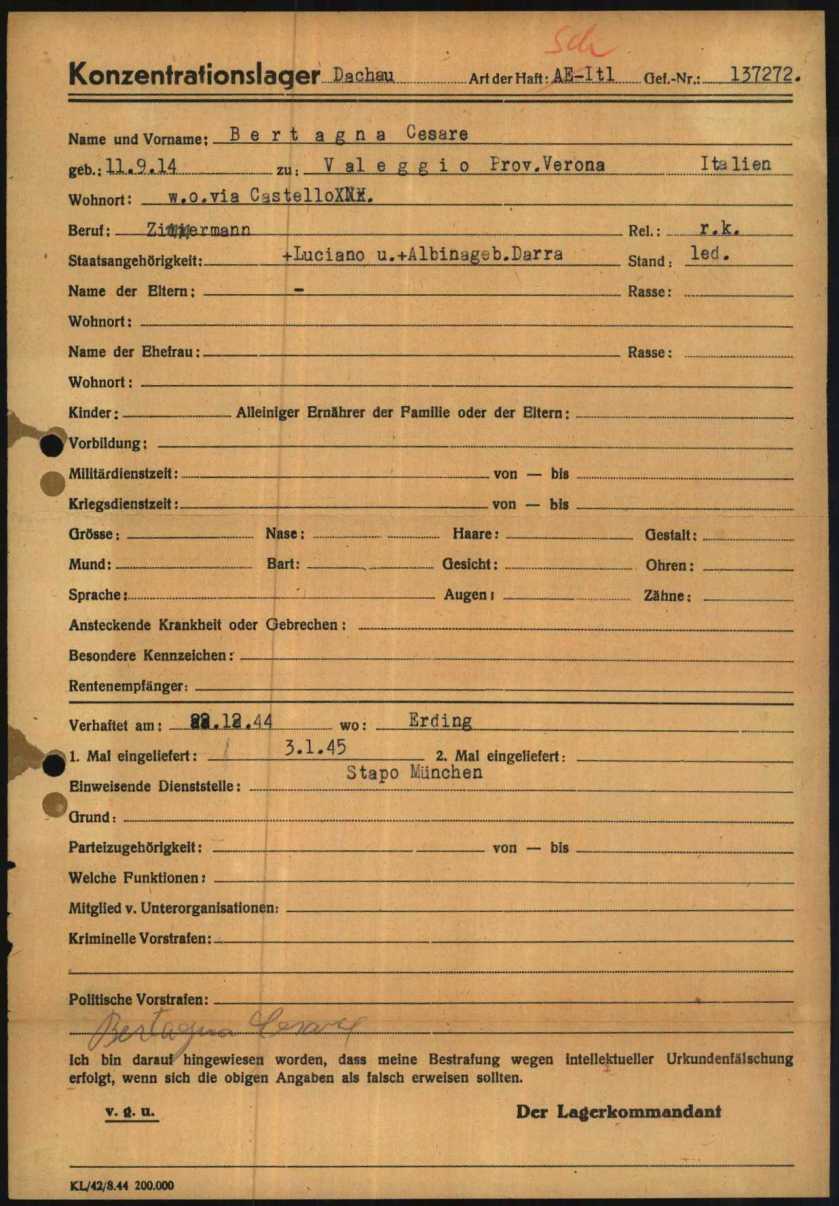 Sch
Konzentrationslager Dachau Art der Haft: AE-Itl Gef.-Nr.: 137272.
Name und Vorname: Bertagna Cesare
geb.: 11.9.14 zu: Valeggio Prov.Verona Italien
Wohnort: w.o.via CastelloXNX.
Beruf: Zimmermann Rel.: r.k.
Staatsangehörigkeit: +Luciano u.+Albinageb.Darra Stand: led.
Name der Eltern: - Rasse:
Wohnort:
Name der Ehefrau: Rasse:
Wohnort:
Kinder: Alleiniger Ernährer der Familie oder der Eltern:
Vorbildung:
Militärdienstzeit: von — bis
Kriegsdienstzeit: von — bis
Grösse: Nase: Haare: Gestalt:
Mund: Bart: Gesicht: Ohren:
Sprache: Augen: Zähne:
Ansteckende Krankheit oder Gebrechen:
Besondere Kennzeichen:
Rentenempfänger:
Verhaftet am: 22.12.44 wo: Erding
1. Mal eingeliefert: 3.1.45 2. Mal eingeliefert:
Einweisende Dienststelle: Stapo München
Grund:
Parteizugehörigkeit: von — bis
Welche Funktionen:
Mitglied v. Unterorganisationen:
Kriminelle Vorstrafen:
Politische Vorstrafen:
Bertagna Cesare
Ich bin darauf hingewiesen worden, dass meine Bestrafung wegen intellektueller Urkundenfälschung
erfolgt, wenn sich die obigen Angaben als falsch erweisen sollten.
v. g. u. Der Lagerkommandant
KL/42/8.44 200.000